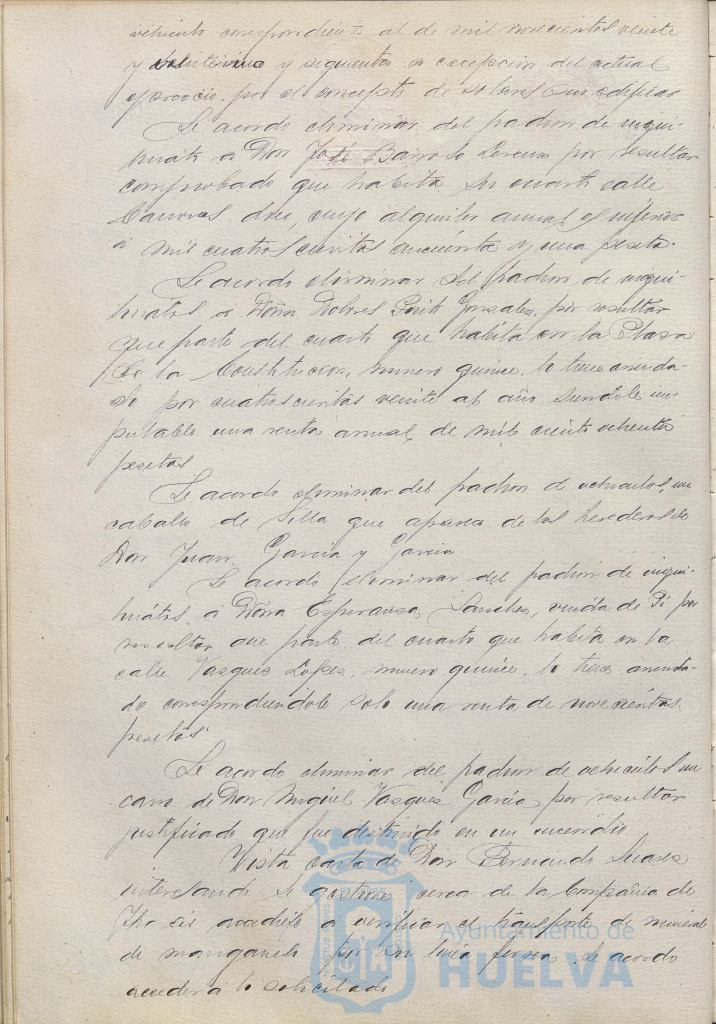 vehiculo correspondiente al de mil novecientos veinte
y y siguientes a excepcion del actual
ejercicio, por el concepto de solares sin edificar
Se acordo eliminar del padron de inqui-
linato a Don José Barroso Lorenzo por resultar
comprobado que habita su cuarto calle
Canovas doce, cuyo alquiler anual es inferior
a mil cuatrocientas cincuenta y una peseta.
Se acordo eliminar del padron de inqui-
linatos a Doña Dolores Gonzalez, por resultar
que parte del cuarto que habita en la Plaza
de la Constitucion, numero quince, lo tiene arrenda-
do por cuatrocientas veinte al año siendole im-
putable una renta anual de mil ciento ochenta
pesetas
Se acordo eliminar del padron de vehiculos, un
caballo de silla que aparece de los herederos de
Don Juan Garcia y Garcia
Se acordo eliminar del padron de inqui-
linatos a Doña Esperanza Sanchez, viuda de Pi por
resultar que parte del cuarto que habita en la
calle Vazquez Lopez, numero quince, lo tiene arrenda-
do correspondiendole solo una renta de novecientas
pesetas.
Se acordo eliminar del padron de vehiculos un
carro de Don Miguel Vasquez Garcia por resultar
justificado que fue destruido en un incendio
Vista carta de Don Fernando Suarez
interesando se gestione cerca de la Compañia de
a verificar el transporte de mineral
de manganeso por su linea ferrea, se acordo
acceder a lo solicitado
Ayuntamiento de
HUELVA